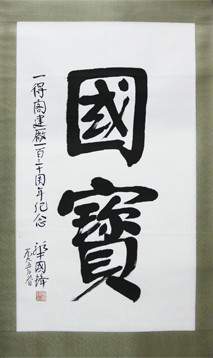 國寶
一得阁建廠一百二十周年紀念
華國鋒